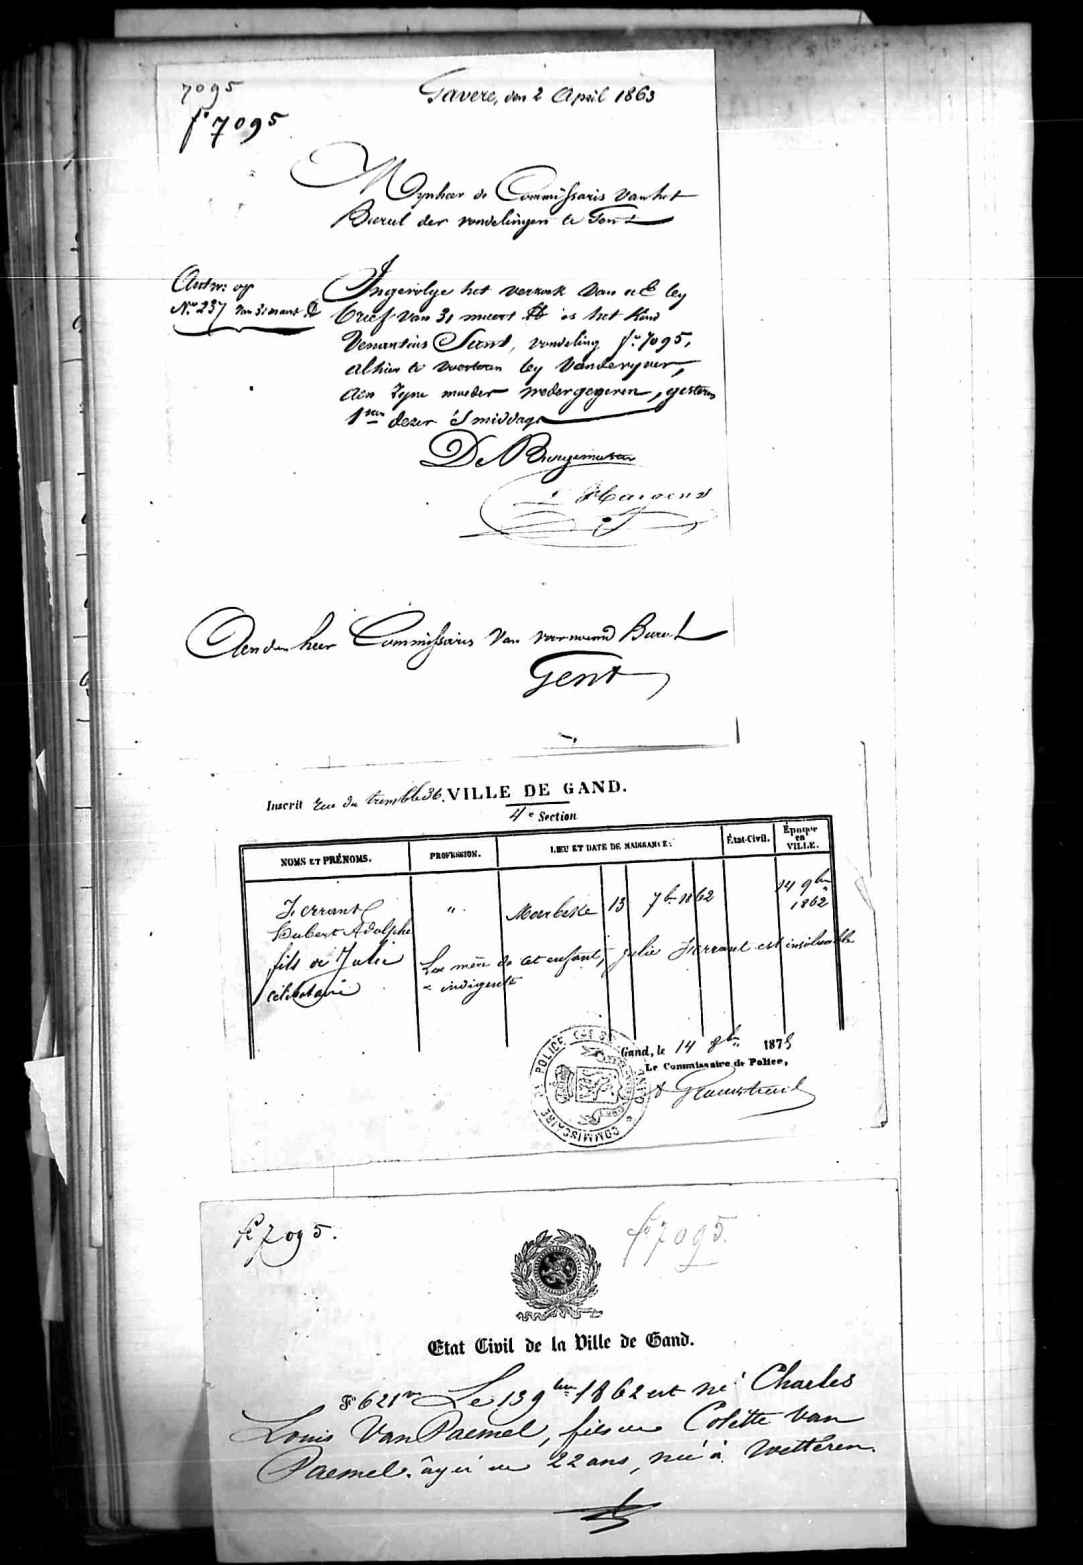 7095
f° 7095
Gavere, den 2 April 1863
Mynheer de Commissaris van het
Bureel der vondelingen te Gent
Antw: op
N° 237 van 31 maart
Ingevolge het verzoek van uE by
brief van 31 meert is het kind
Venantius Sant, vondeling f° 7095,
alhier te voesteren by Vanderynen,
aen zyne moeder wedergegeven, gisteren
1sten dezer 's middags
De Burgemeester
Aen den heer Commissaris van voornoemd Bureel
Gent
Inscrit rue du tremble 36. VILLE DE GAND.
4e Section
NOMS ET PRÉNOMS. PROFESSION. LIEU ET DATE DE NAISSANCE. État-Civil. Époque en VILLE.
Ferrant " 13 7bre 1862 14 9bre 1862
Hubert Adolphe
fils de Julie La mère de cet enfant, Julie Ferrant est insolvable
célibataire indigente
Gand, le 14 187
Le Commissaire de Police,
COMMISSAIRE DE POLICE
f° 7095.
f° 7095.
Etat Civil de la Ville de Gand.
Le 13 9bre 1862 est né Charles
Louis Van Paemel, fils de Colette Van
Paemel, âgée de 22 ans, née à Wetteren.